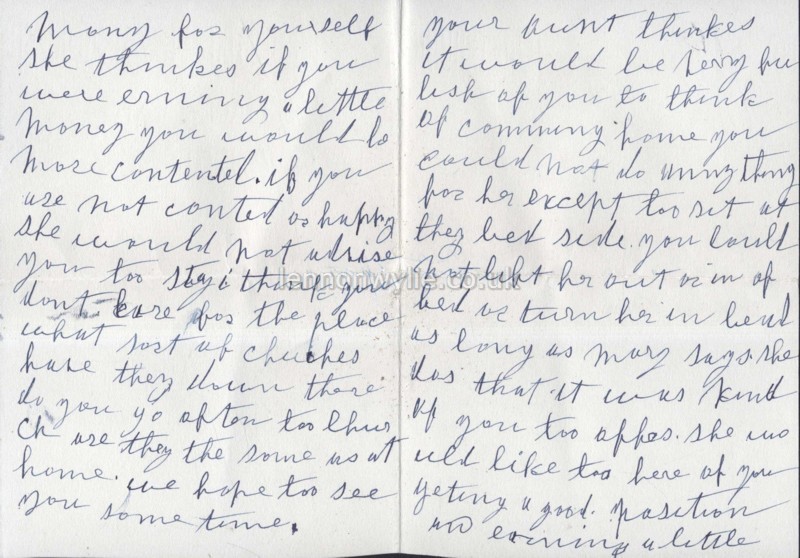 mony for yourself
she thinkes if you
were erning a little
money you would be
more contented. if you
are not conted or happy
she would not advise
you too stay i think you
dont care for the place
what sort of chuches
have they down there
do you go often too Chur
ch are they the some as at
home. we hope too see
you some time.
your aunt thinkes
it would be very fu
lish of you to think
of comming home you
could not do inny thing
for her except too sit at
they bed side. you could
not lift her out or in of
bed or turn her in bead
as long as mary says. she
das that it was kind
of you too offes. she wo
uld like too here of you
geting a good. position
and erning a little
lennonwylie.co.uk